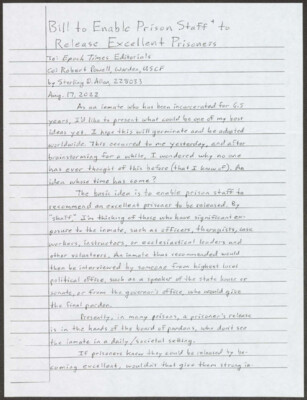 Bill to Enable Prison Staff* to
Release Excellent Prisoners
To: Epoch Times Editorials
Cc: Robert Powell, Warden, USCF
by Sterling D. Allan,
Aug. 17, 2022
As an inmate who has been incarcerated for 6.5
years, I'd like to present what would be one of my best
ideas yet. I hope this will germinate and be adopted
worldwide. This occurred to me yesterday, and after
brainstorming for a while, I wondered why no one
has ever thought of this before (that I know of). An
idea whose time has come?
The basic idea is to enable prison staff to
recommend an excellent prisoner to be released. By
"staff," I'm thinking of those who have significant ex-
posure to the inmate, such as officers, therapists, case
workers, instructors, or ecclesiastical leaders and
other volunteers. An inmate thus recommended would
then be interviewed by someone from highest local
political office, such as a speaker of the state house or
senate, or from the governor's office, who would give
the final pardon.
Presently, in many prisons, a prisoner's release
is in the hands of the board of pardons, who don't see
the inmate in a daily/societal setting.
If prisoners knew they could be released by be-
coming excellent, wouldn't that give them strong in-